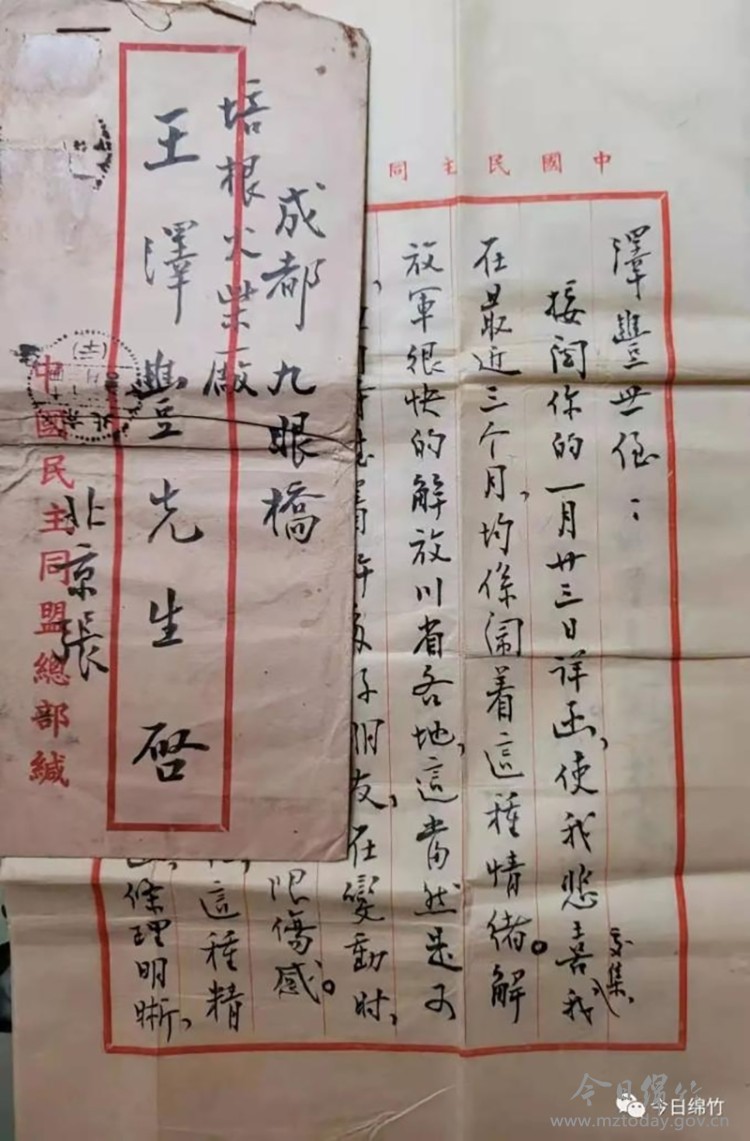 成都九眼橋
培根火柴廠
王澤豐先生啓
北京張
中國民主同盟總部緘
中國民主同
澤豐世侄：
接閱你的一月廿三日詳函，使我悲喜交集，我
在最近三个月，均係鬧着這種情緒。解
放軍很快的解放川省各地，這當然是可
青年男子朋友，在變動时，
限傷感。
這種精
條理明晰，
今日绵竹
今日绵竹
www.mztoday.gov.cn